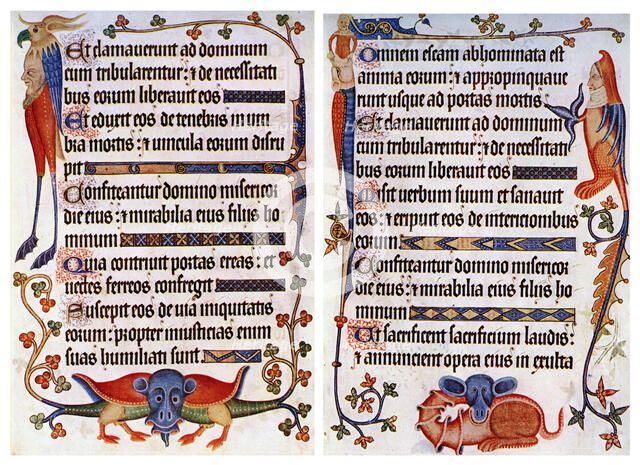 Et clamauerunt ad dominum
cum tribularentur : & de necessitati
bus eorum liberauit eos
Et eduxit eos de tenebris & um
bra mortis : & uincula eorum disru
pit
Confiteantur domino misericor
die eius : & mirabilia eius filiis ho
minum
Quia contriuit portas ereas : et
uectes ferreos confregit
Suscepit eos de uia iniquitatis
eorum : propter iniusticias enim
suas humiliati sunt
Omnem escam abhominata est
anima eorum : & appropinquaue
runt usque ad portas mortis
Et clamauerunt ad dominum
cum tribularentur : & de necessitati
bus eorum liberauit eos
Misit uerbum suum et sanauit
eos : & eripuit eos de intericionibus
eorum
Confiteantur domino misericor
die eius : & mirabilia eius filiis ho
minum
Et sacrificent sacrificium laudis :
& annuncient opera eius in exulta